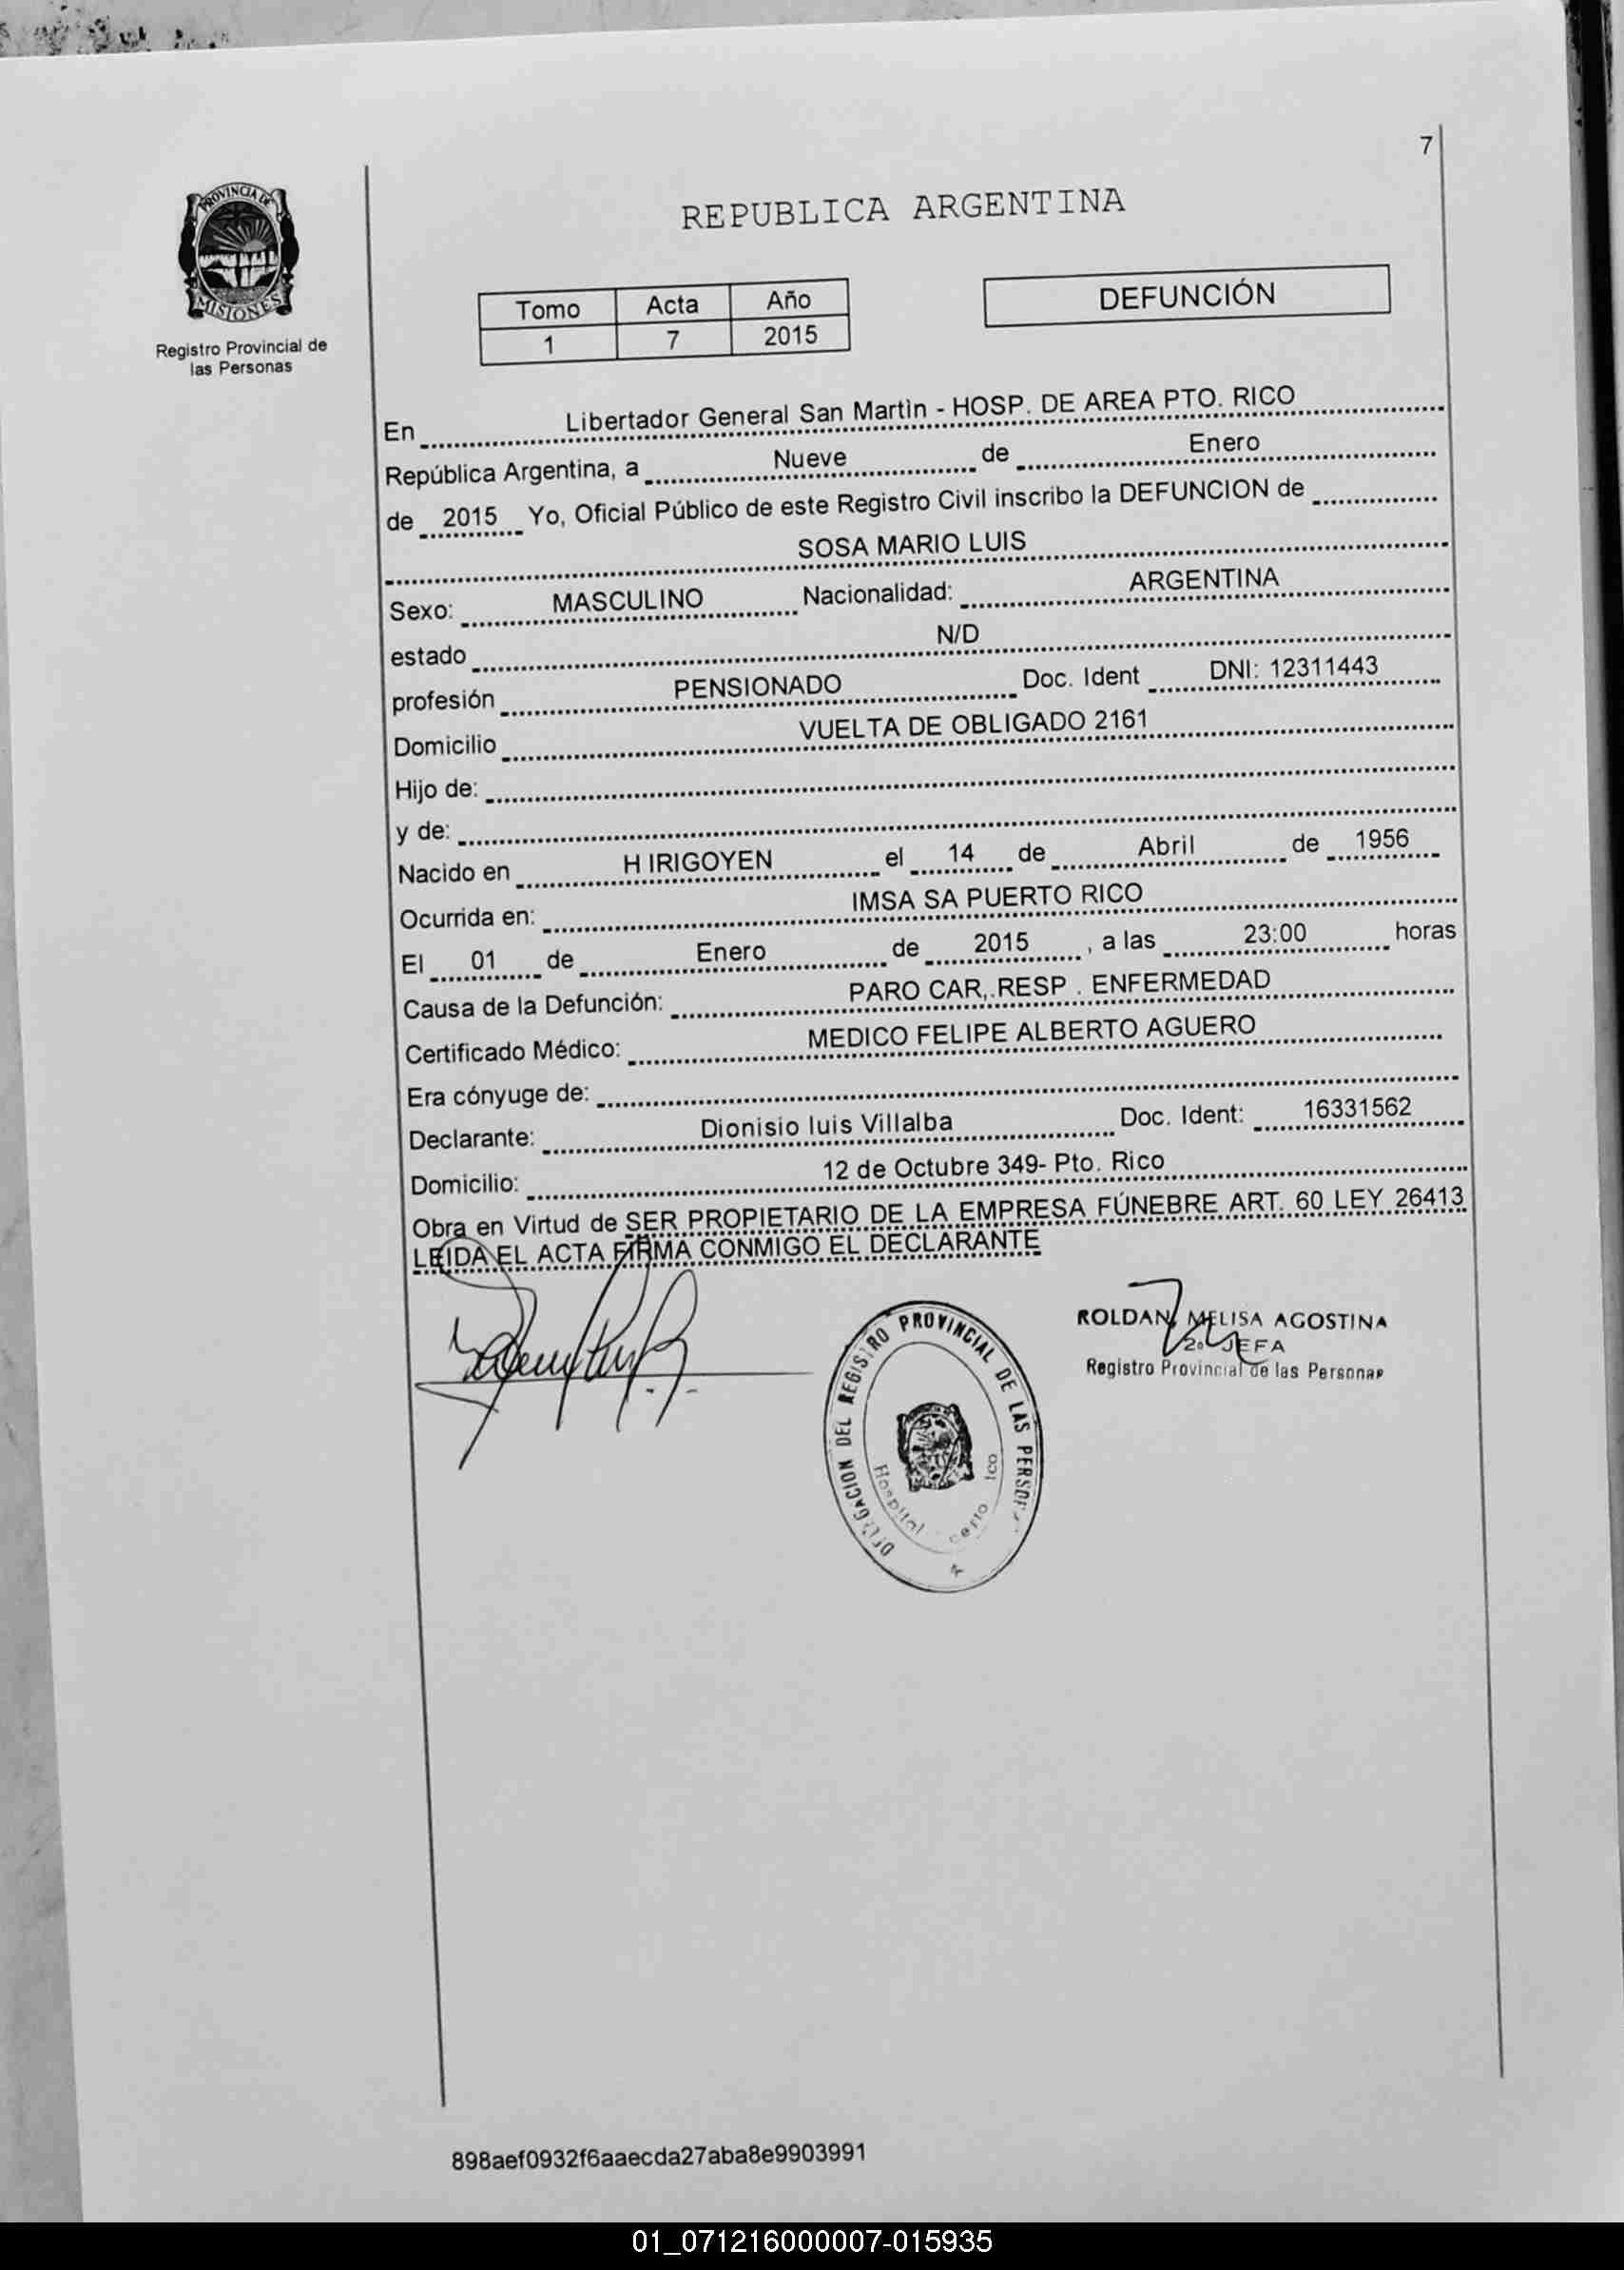 7
PROVINCIA DE
MISIONES
Registro Provincial de
las Personas
REPUBLICA ARGENTINA
Tomo Acta Año
1 7 2015
DEFUNCIÓN
En Libertador General San Martìn - HOSP. DE AREA PTO. RICO
República Argentina, a Nueve de Enero
de 2015 Yo, Oficial Público de este Registro Civil inscribo la DEFUNCION de
SOSA MARIO LUIS
Sexo: MASCULINO Nacionalidad: ARGENTINA
estado N/D
profesión PENSIONADO Doc. Ident DNI: 12311443
Domicilio VUELTA DE OBLIGADO 2161
Hijo de:
y de:
Nacido en H IRIGOYEN el 14 de Abril de 1956
Ocurrida en: IMSA SA PUERTO RICO
El 01 de Enero de 2015 , a las 23:00 horas
Causa de la Defunción: PARO CAR,.RESP . ENFERMEDAD
Certificado Médico: MEDICO FELIPE ALBERTO AGUERO
Era cónyuge de:
Declarante: Dionisio luis Villalba Doc. Ident: 16331562
Domicilio: 12 de Octubre 349- Pto. Rico
Obra en Virtud de SER PROPIETARIO DE LA EMPRESA FÚNEBRE ART. 60 LEY 26413
LEIDA EL ACTA FIRMA CONMIGO EL DECLARANTE
ROLDAN, MELISA AGOSTINA
JEFA
Registro Provincial de las Personas
DELEGACION DEL REGISTRO PROVINCIAL DE LAS
Hospital
898aef0932f6aaecda27aba8e9903991
01_071216000007-015935